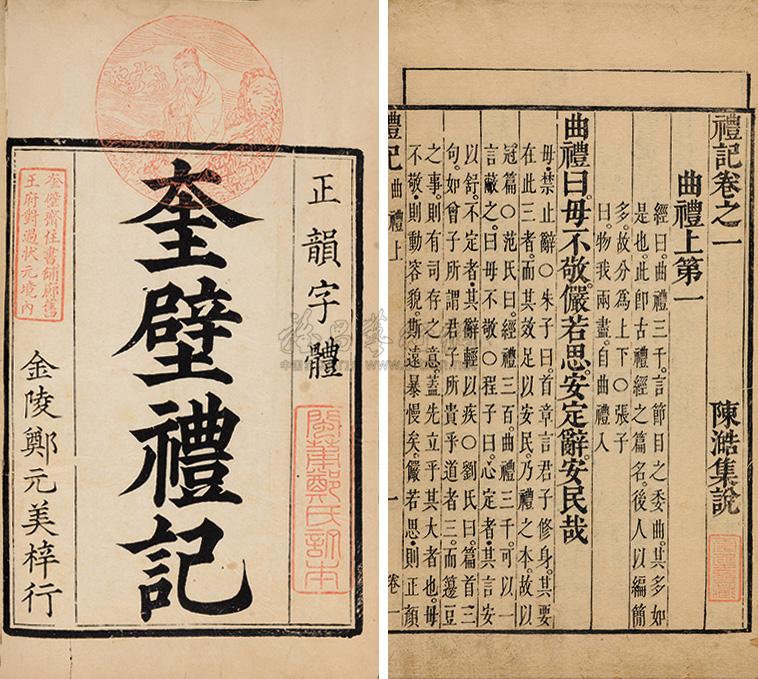 正韻字體
奎壁禮記
金陵鄭元美梓行
奎壁齋住書鋪廊舊
王府對過狀元境內
閩莆鄭氏訂本
禮記卷之一
陳澔集說
曲禮上第一
經曰。曲禮三千。言節目之委曲。其多如
是也。此即古禮經之篇名。後人以編簡
多。故分為上下〇張子
曰。物我兩盡。自曲禮入
曲禮曰。毋不敬。儼若思。安定辭。安民哉
毋。禁止辭〇朱子曰。首章言君子修身。其要
在此三者。而其效足以安民。乃禮之本。故以
冠篇〇范氏曰。經禮三百。曲禮三千。可以一
言蔽之。曰毋不敬〇程子曰。心定者。其言安
以舒。不定者。其辭輕以疾〇劉氏曰。篇首三
句。如曾子所謂君子所貴乎道者三。而籩豆
之事。則有司存之意。蓋先立乎其大者也。毋
不敬。則動容貌。斯遠暴慢矣。儼若思。則正顏
禮記 曲禮上 一 卷一